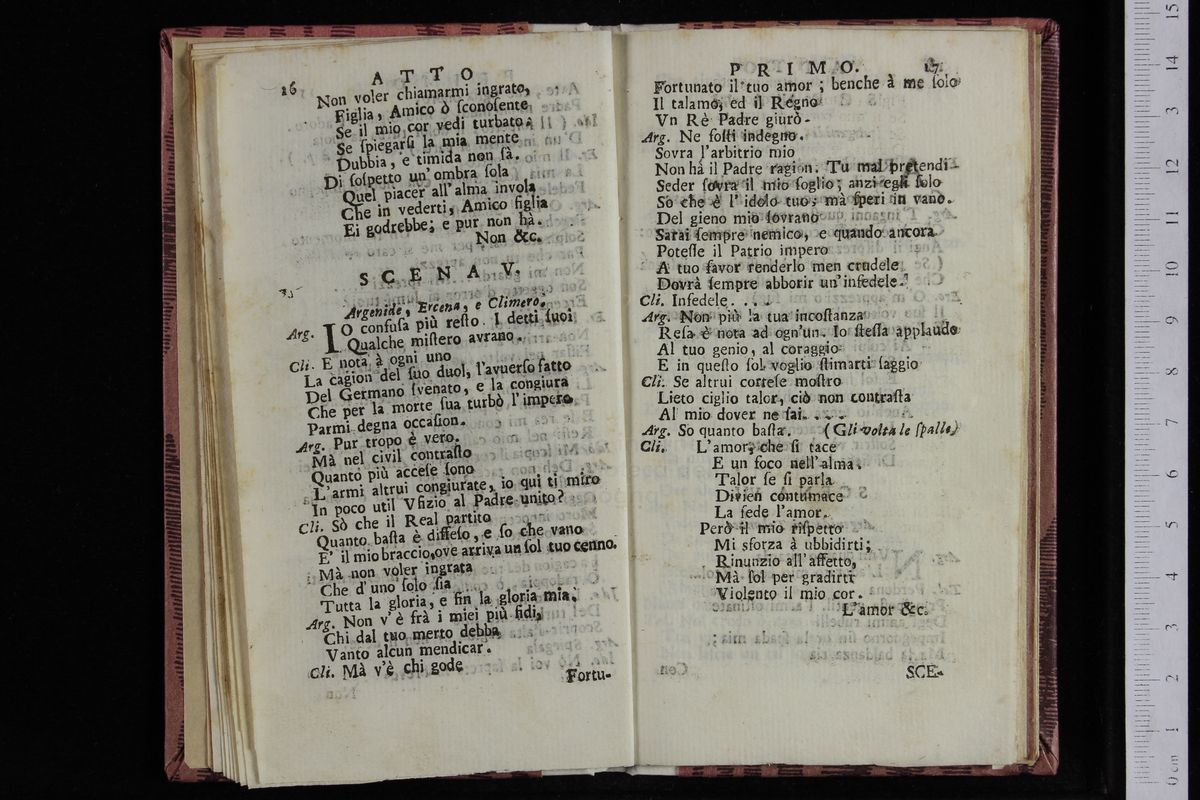 16
ATTO
Non voler chiamarmi ingrato,
Figlia, Amico ò ſconoſente
Se il mio cor vedi turbato;
Se ſpiegarſi la mia mente
Dubbia, e timida non ſà.
Di ſoſpetto un' ombra ſola
Quel piacer all' alma invola
Che in vederti, Amico figlia
Ei godrebbe; e pur non hà.
Non &c.
SCENA V.
Argenide, Ercena, e Climero.
Arg. IO confuſa più reſto. I detti ſuoi
Qualche miſtero avrano.
Cli. E nota à ogni uno
La cagion del ſuo duol, l'avuerſo fatto
Del Germano ſvenato, e la congiura
Che per la morte ſua turbò l'impero
Parmi degna occaſion.
Arg. Pur tropo è vero.
Mà nel civil contraſto
Quanto più acceſe ſono
L'armi altrui congiurate, io qui ti miro
In poco util Vfizio al Padre unito?
Cli. Sò che il Real partito
Quanto baſta è diffeſo, e ſo che vano
E' il mio braccio, ove arriva un ſol tuo cenno.
Mà non voler ingrata
Che d'uno ſolo ſia
Tutta la gloria, e fin la gloria mia.
Arg. Non v'è frà i miei più fidi,
Chi dal tuo merto debba
Vanto alcun mendicar.
Cli. Mà v'è chi gode
Fortu-
PRIMO.
17
Fortunato il tuo amor; benche à me ſolo
Il talamo, ed il Regno
Vn Rè Padre giurò.
Arg. Ne foſti indegno.
Sovra l'arbitrio mio
Non hà il Padre ragion. Tu mal pretendi
Seder ſovra il mio ſoglio; anzi egli ſolo
So che è l' idolo tuo; mà ſperi in vano.
Del gieno mio ſovrano
Sarai ſempre nemico, e quando ancora
Poteſſe il Patrio impero
A tuo favor renderlo men crudele
Dovrà ſempre abborir un' infedele.
Cli. Infedele. . . .
Arg. Non più la tua incoſtanza
Reſa è nota ad ogn'un. Io ſteſſa applaudo
Al tuo genio, al coraggio
E in queſto ſol voglio ſtimarti ſaggio
Cli. Se altrui corteſe moſtro
Lieto ciglio talor, ciò non contraſta
Al mio dover ne ſai. . . .
Arg. So quanto baſta. (Gli volta le ſpalle)
Cli. L'amor, che ſi tace
E un foco nell' alma.
Talor ſe ſi parla
Divien contumace
La fede l'amor.
Però il mio riſpetto
Mi sforza à ubbidirti;
Rinunzio all' affetto,
Mà ſol per gradirti
Violento il mio cor.
L'amor &c.
SCE-